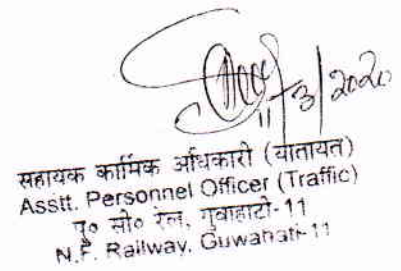 11/3/2020
सहायक कार्मिक अधिकारी (यातायत)
Asstt. Personnel Officer (Traffic)
पु० सी० रेल, गुवाहाटी-11
N.F. Railway, Guwahati-11